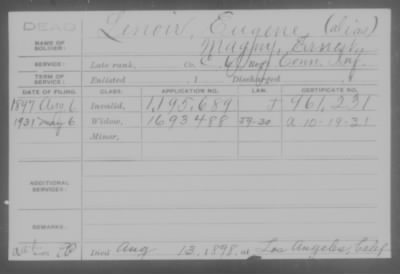 DEAD
Lenoir, Eugene (alias)
NAME OF SOLDIER: Magny, Ernest
SERVICE: Late rank, Co. C, 6 Reg't Conn. Inf.
TERM OF SERVICE: Enlisted , 1 Discharged , 1
DATE OF FILING. CLASS. APPLICATION NO. LAW. CERTIFICATE NO.
1897 Invalid, 1,195,689 J 961,231
1931 May 6 Widow, 1693488 A 10-19-31
Minor,
ADDITIONAL SERVICES:
REMARKS:
Died Aug 13, 1898, at Los Angeles, Calif